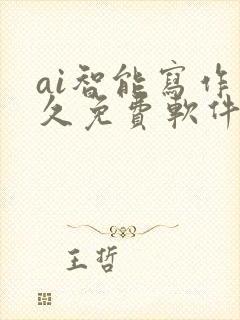 ai智能寫作
久免費軟件
王哲